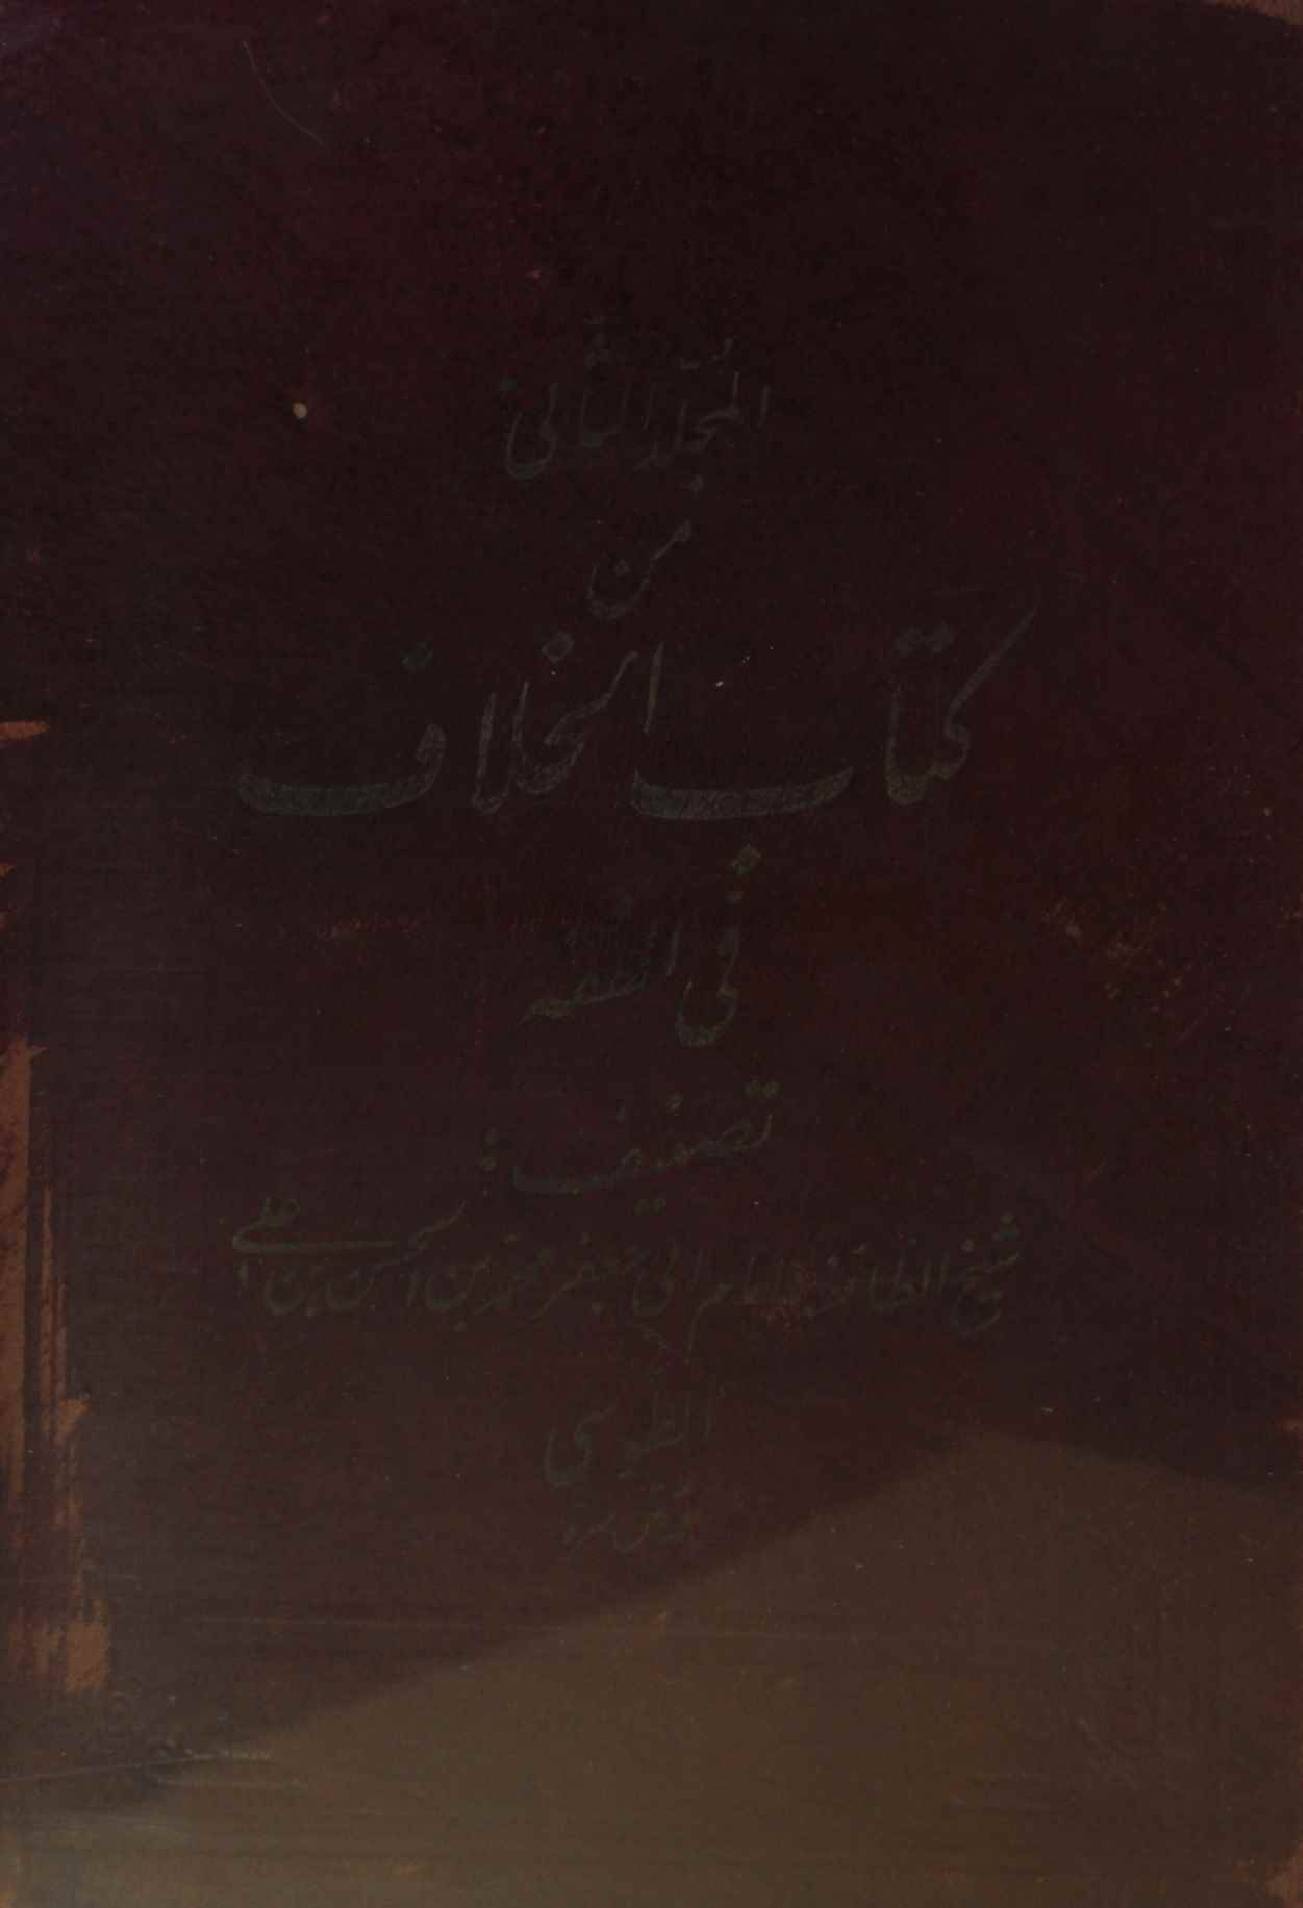 المجلد الثانی
من
کتاب الخلاف
فی الفقه
تصنیف :
شیخ الطائفة الامام ابی جعفر محمد بن الحسن بن علی
الطوسی
قدس سره